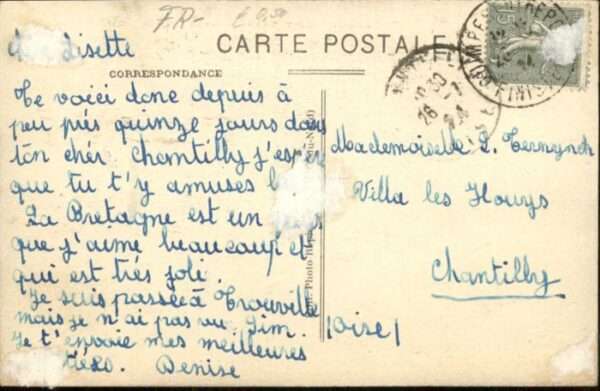 FR- € 0,50
CARTE POSTALE
CORRESPONDANCE
Lisette
Te voici donc depuis à
peu près quinze jours dans
ton chér Chantilly j'espère
que tu t'y amuses b
La Bretagne est un pays
que j'aime beaucoup et
qui est trés joli.
Je suis passée à Trouville
mais je n'ai pas vu Jim.
Je t'envoie mes meilleures
Denise
Mademoiselle L. Ternynck
Villa les Houys
Chantilly
(Oise)
QUIMPER
FINISTERE
15